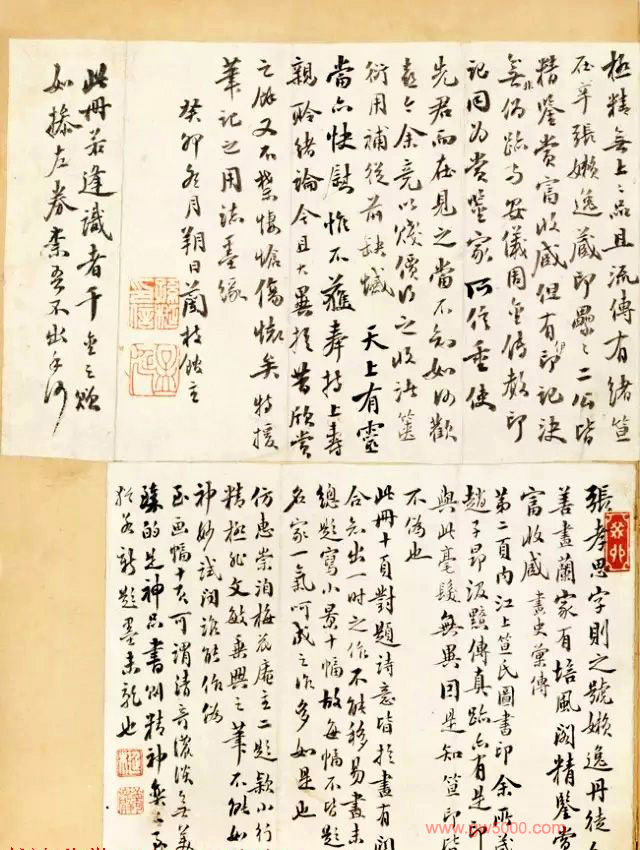 極精無上上品且流傳有緒笪
張嬾逸藏印纍纍二公皆
精鑒賞富收藏但有印記決
偽跡與安儀周
記同為賞鑒家所信重使
先君而在見之當不知如何歡
喜今余竟以賤價得之收諸篋
衍用補從前缺憾 天上有靈
當亦快慰惟不獲奉持上壽
親聆緒論今且大異於昔欣賞
之餘又不禁悽愴傷懷矣特援
筆記之用誌墨緣
癸卯冬月朔日蘭枝館主
此冊若逢識者千金之
如操左券索吾不出手何
張孝思字則之號嬾逸丹徒人
善畫蘭家有培風閣精鑒賞
富收藏 畫史彙傳
第二頁內江上笪氏圖書印余所藏
趙子昂汲黯傳真跡亦有是印
與此毫髮無異因是知笪印皆
不偽也
此冊十頁對題詩意皆於畫有關
合 出一時之作不能移易畫末
總題寫小景十幅故每幅不皆題
名家一氣呵成之作多如是也
仿惠崇泊梅花庵主二題款小行
精極非文敏乘興之筆不能如
神妙試問誰能作偽
至画幅十頁可謂清奇濃淡無美
臻的是神品書則精神奕奕
猶若新題墨未乾也